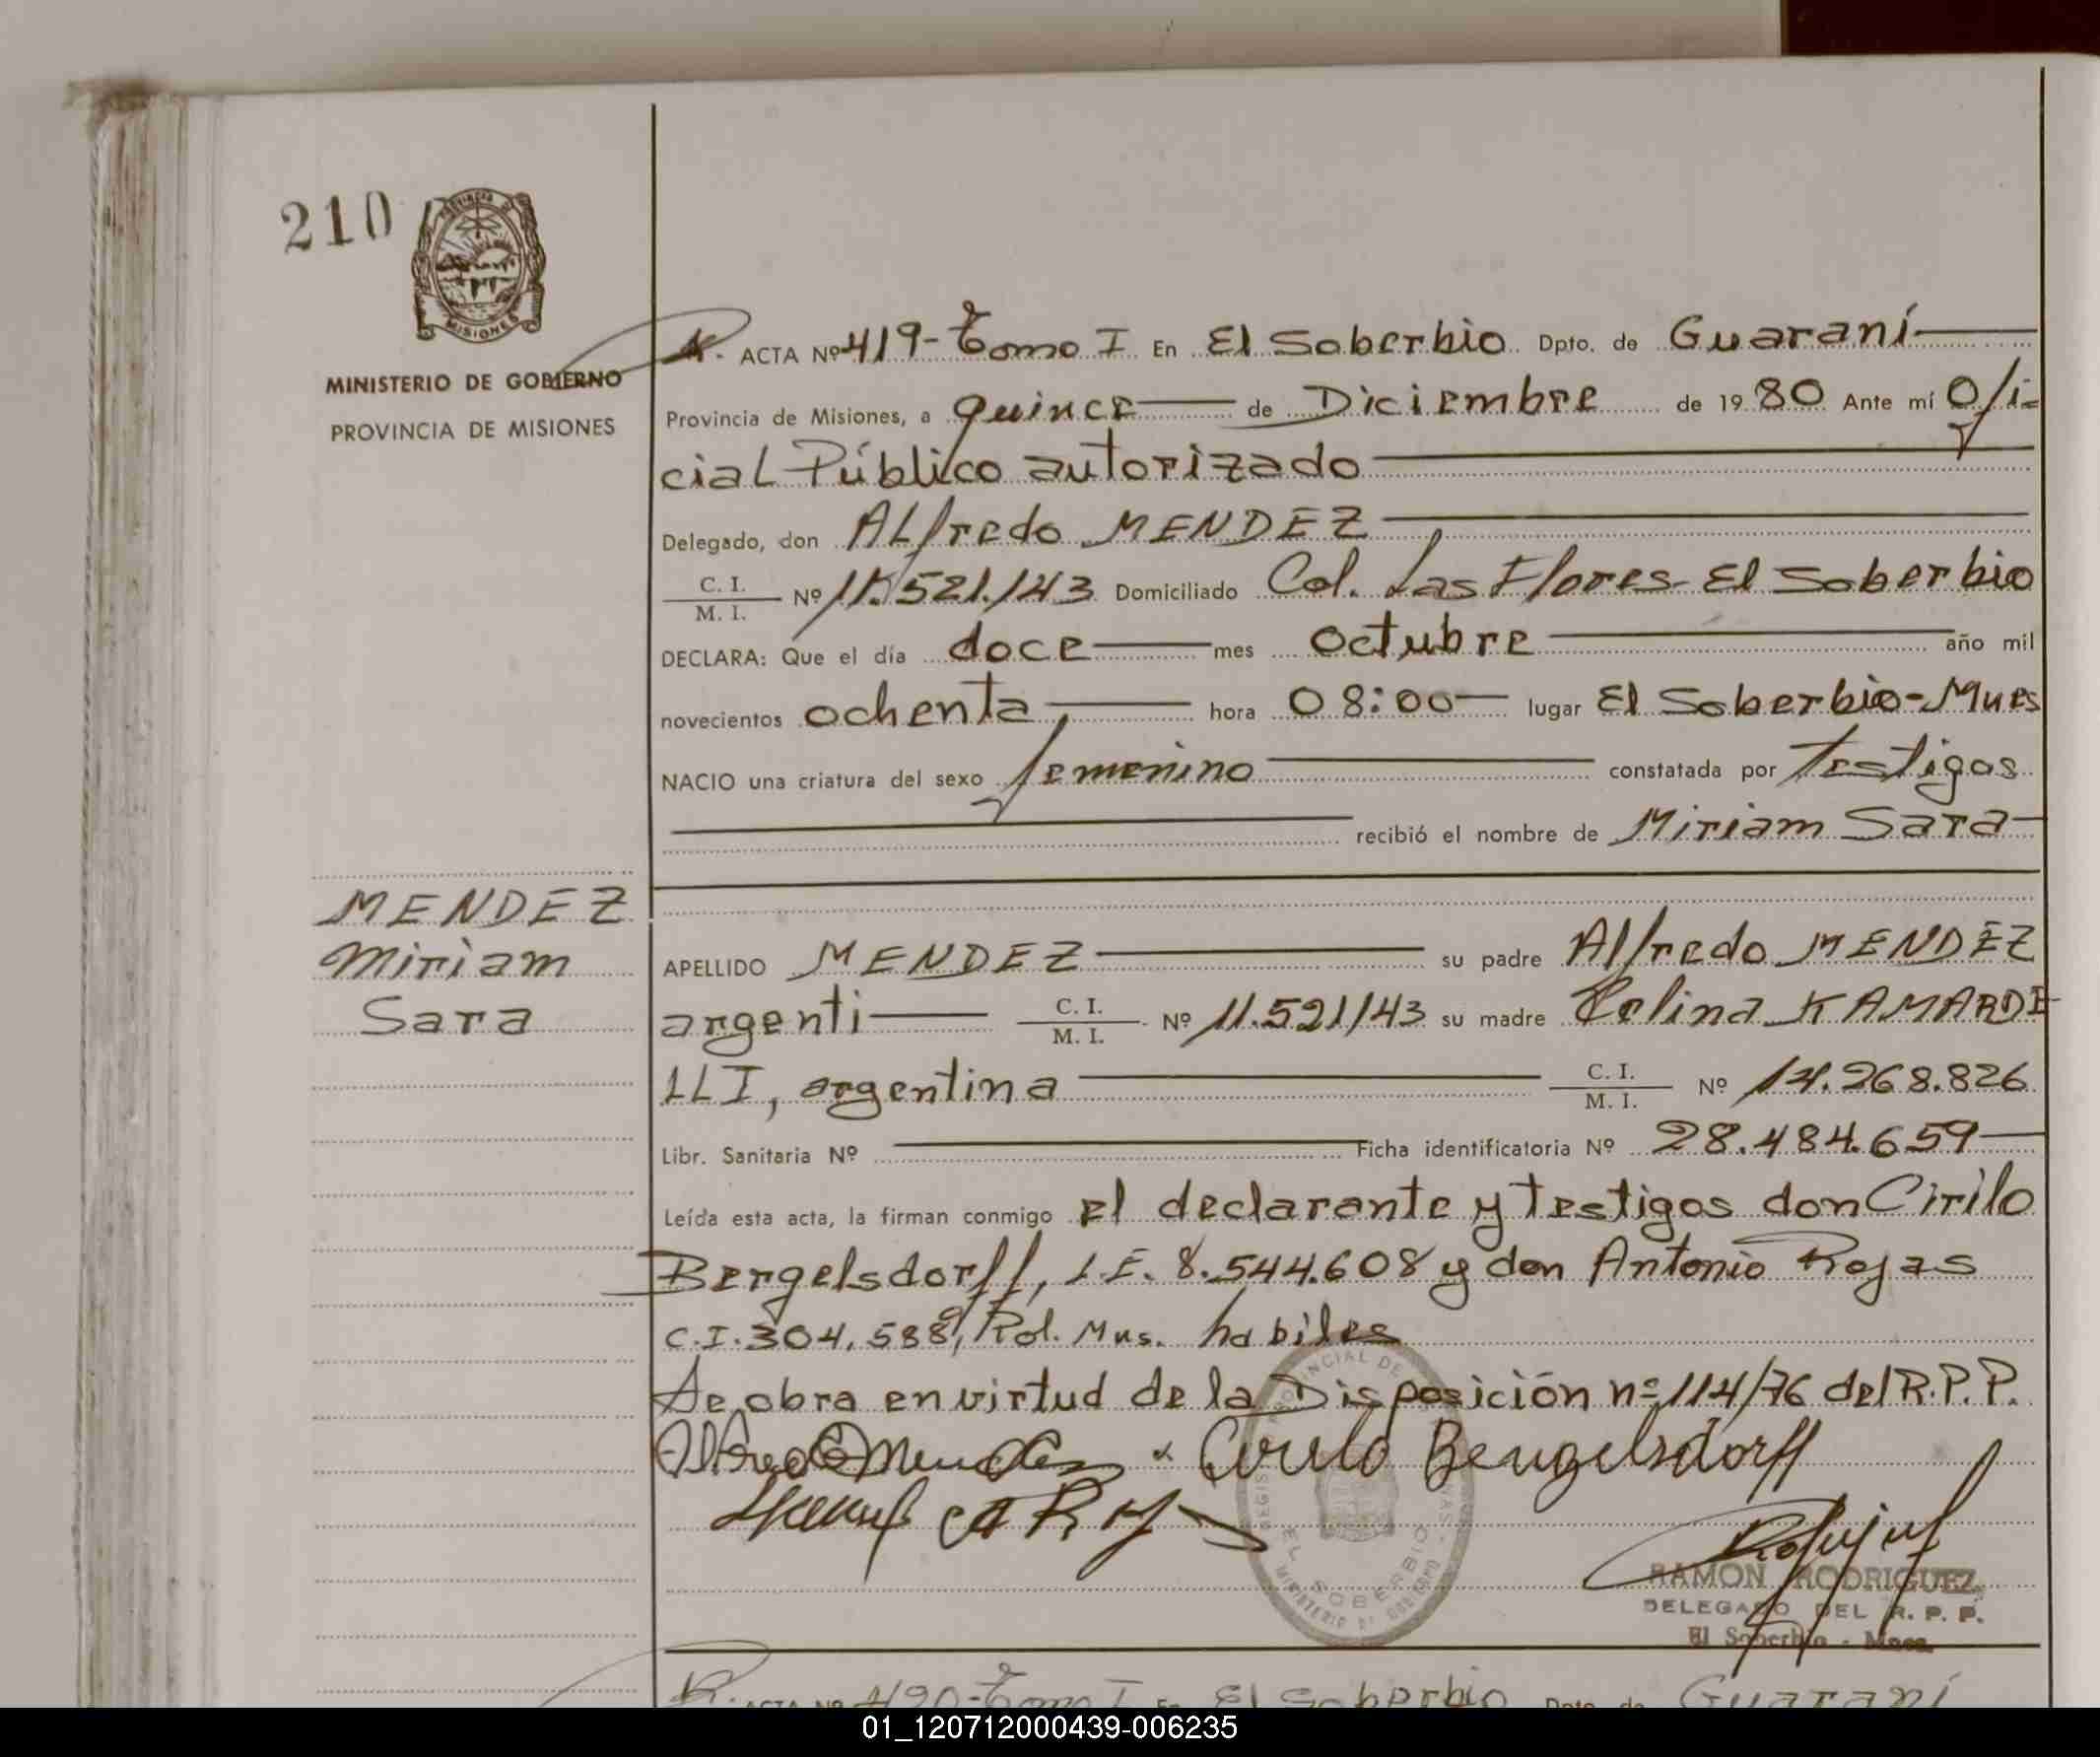 210
MISIONES
MINISTERIO DE GOBIERNO
PROVINCIA DE MISIONES
ACTA Nº 419-Tomo I En El Soberbio Dpto. de Guaraní
Provincia de Misiones, a quince de Diciembre de 1980 Ante mí Ofi=
cial Público autorizado
Delegado, don Alfredo MENDEZ
C. I. / M. I. Nº 11.521.143 Domiciliado Col. Las Flores-El Soberbio
DECLARA: Que el día doce mes octubre año mil
novecientos ochenta hora 08:00 lugar El Soberbio-Mnes
NACIO una criatura del sexo femenino constatada por testigos
recibió el nombre de Miriam Sara
MENDEZ
Miriam
Sara
APELLIDO MENDEZ su padre Alfredo MENDEZ
argenti C. I. / M. I. Nº 11.521143 su madre Celina KAMARDE
LLI, argentina C. I. / M. I. Nº 14.268.826
Libr. Sanitaria Nº Ficha identificatoria Nº 28.484.659
Leída esta acta, la firman conmigo el declarante y testigos don Cirilo
Bergelsdorff, L.E. 8.544.608 y don Antonio Rojas
C.I. 304.588, Pol. Mns. habiles
Se obra en virtud de la Disposición nº 114/76 del R.P.P.
Alfredo Mendez Cirilo Bengelsdorff
EL SOBERBIO
RAMON RODRIGUEZ
DELEGADO DEL R. P. P.
El Soberbio - Mnes.
ACTA Nº 420-Tomo I En El Soberbio Dpto. de Guaraní
01_120712000439-006235